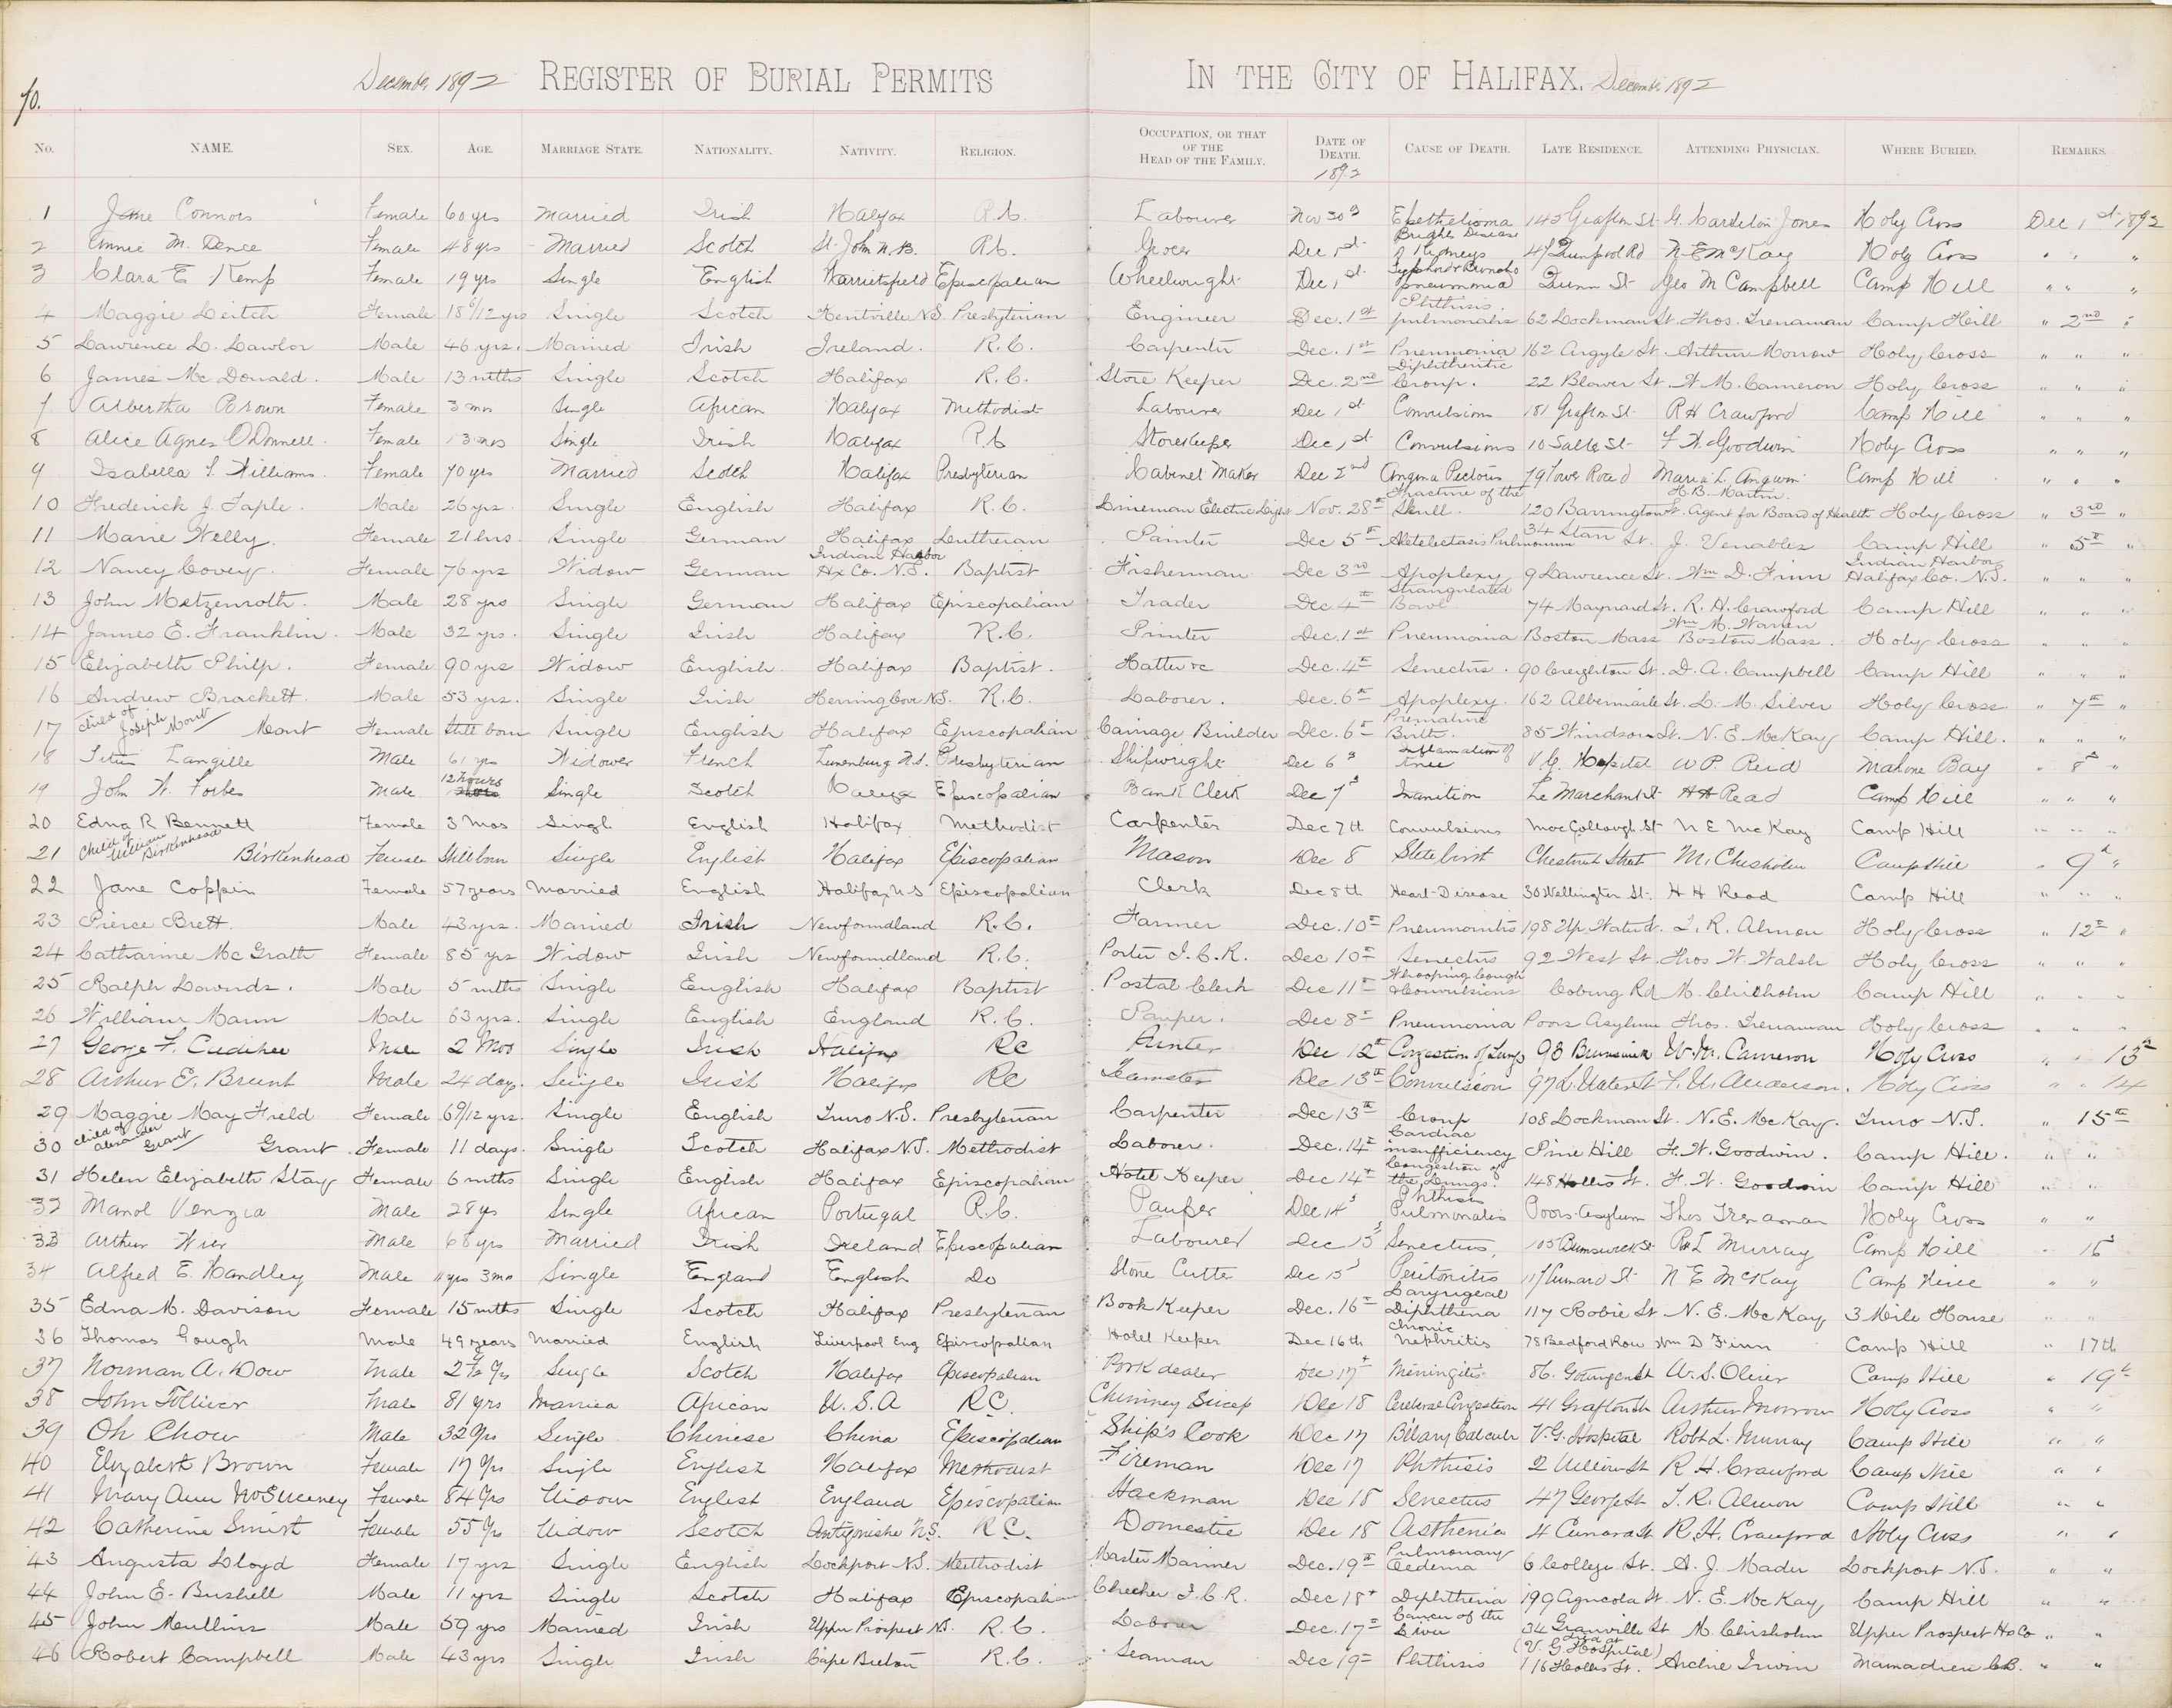 70.
December 1892 REGISTER OF BURIAL PERMITS IN THE CITY OF HALIFAX. December 1892
No. NAME. SEX. AGE. MARRIAGE STATE. NATIONALITY. NATIVITY. RELIGION. OCCUPATION, OR THAT OF THE HEAD OF THE FAMILY. DATE OF DEATH. 1892 CAUSE OF DEATH. LATE RESIDENCE. ATTENDING PHYSICIAN. WHERE BURIED. REMARKS.
1 Jane Connors Female 60 yrs Married Irish Halifax R.C. Labourer Nov 30th Epethelioma 145 Grafton St. G. Carleton Jones Holy Cross Dec 1st 1892
2 Annie M. Dence Female 48 yrs Married Scotch St. John N.B. R.C. Grocer Dec 1st Brights Disease of Kidneys 47 Quinpool Rd N E McKay Holy Cross " " "
3 Clara E Kemp Female 19 yrs Single English Harrietsfield Episcopalian Wheelwright Dec 1st Typhoid & Broncho pneumonia Quinn St Geo M Campbell Camp Hill " " "
4 Maggie Leitch Female 18 6/12 yrs Single Scotch Kentville N.S. Presbyterian Engineer Dec. 1st Phthisis pulmonalis 62 Lockman St. Thos. Trenaman Camp Hill " 2nd "
5 Lawrence L. Lawlor Male 46 yrs. Married Irish Ireland. R.C. Carpenter Dec. 1st Pneumonia 162 Argyle St. Arthur Morrow Holy Cross " " "
6 James McDonald. Male 13 mths Single Scotch Halifax R.C. Store Keeper Dec. 2nd Diphtheritic Croup. 22 Blower St. W. M. Cameron Holy Cross " " "
7 Albertha Brown Female 3 mos Single African Halifax Methodist Labourer Dec 1st Convulsions 181 Grafton St. R H Crawford Camp Hill " " "
8 Alice Agnes O'Donnell. Female 13 mos Single Irish Halifax R.C Storekeeper Dec 1st Convulsions 10 Salter St F. W. Goodwin Holy Cross " " "
9 Isabella S. Williams. Female 70 yrs Married Scotch Halifax Presbyterian Cabinet Maker Dec 2nd Angina Pectoris 79 Tower Road Maria L. Angwin Camp Hill " " "
10 Frederick J. Taple. Male 26 yrs. Single English Halifax R.C. Lineman Electric Light Nov. 28th Fracture of the Skull. 120 Barrington St. H. B. Martin. Agent for Board of Health Holy Cross " 3rd "
11 Marie Welly. Female 21 hrs. Single German Halifax Lutherian Painter Dec 5th Atelectasis Pulmonum 34 Starr St. J. Venables Camp Hill " 5th "
12 Nancy Covey. Female 76 yrs Widow German Indian Harbor Hx Co. N.S. Baptist Fisherman Dec 3rd Apoplexy 9 Lawrence St. Wm D. Finn Indian Harbor Halifax Co. N.S. " " "
13 John Metzenroth. Male 28 yrs Single German Halifax Episcopalian Trader Dec. 4th Strangulated Bowl 74 Maynard St. R. H. Crawford Camp Hill " " "
14 James E. Franklin. Male 32 yrs. Single Irish Halifax R.C. Printer Dec. 1st Pneumonia Boston Mass Wm M. Warren Boston Mass. Holy Cross " " "
15 Elizabeth Philp. Female 90 yrs Widow English. Halifax Baptist. Hatter &c Dec. 4th Senectus. 90 Creighton St. D. A. Campbell Camp Hill " " "
16 Andrew Brackett. Male 53 yrs. Single Irish Herring Cove N.S. R.C. Laborer. Dec. 6th Apoplexy. 162 Albermarle St. L. M. Silver Holy Cross " 7th "
17 Child of Joseph Mont Mont Female Still born Single English Halifax Episcopalian Carriage Builder Dec. 6th Premature Birth. 85 Windsor St. N. E. McKay Camp Hill. " " "
18 Langille Male 61 yrs Widower French Lunenburg N.S. Presbyterian Shipwright Dec 6th Inflamation of V.G. Hospital W P. Reid Mahone Bay " 8th "
19 John W. Forbes Male 12 hours Single Scotch Halifax Episcopalian Bank Clerk Dec 7th Inanition Le Marchant St H H Read Camp Hill " " "
20 Edna R Bennett Female 3 Mos Singl English Halifax Methodist Carpenter Dec 7th Convulsions MacCollough St N E McKay Camp Hill " " "
21 Child of William Birkenhead Birkenhead Female Stillborn Single English Halifax Episcopalian Mason Dec 8 Stillbirth Chestnut Street M. Chisholm Camp Hill " 9th "
22 Jane Coppin Female 57 years Married English Halifax N S Episcopalian Clerk Dec 8th Heart-Disease 30 Wellington St. H H Read Camp Hill " " "
23 Pierce Brett. Male 43 yrs. Married Irish Newfoundland R.C. Farmer Dec. 10th Pneumonitis 198 Up. Water St. T. R. Almon Holy Cross " 12th "
24 Catharine McGrath Female 85 yrs Widow Irish Newfoundland R.C. Porter I.C.R. Dec 10th Senectus 92 West St. Thos W Walsh Holy Cross " " "
25 Ralph Lownds. Male 5 mths Single English Halifax Baptist Postal Clerk Dec 11th Whooping Cough & Convulsions Coburg Rd M. Chisholm Camp Hill " " "
26 William Mann Male 63 yrs. Single English England R.C. Pauper. Dec 8th Pneumonia Poors Asylum Thos. Trenaman Holy Cross " " "
27 George F. Cudihee Male 2 Mos Single Irish Halifax RC Printer Dec 12th Congestion of Lungs 98 Brunswick W. M. Cameron Holy Cross " " 13th
28 Arthur E. Brunt Male 24 days. Single Irish Halifax RC Teamster Dec 13th Convulsion 97 L. Water St F. U. Anderson. Holy Cross " " 14
29 Maggie May Field Female 6 9/12 yrs. Single English Truro N.S. Presbyterian Carpenter Dec 13th Croup 108 Lockman St. N. E. McKay. Truro N.S. " 15th
30 Child of Alexander Grant Grant Female 11 days. Single Scotch Halifax N.S. Methodist Laborer. Dec. 14th Cardiac insufficiency Pine Hill F. W. Goodwin. Camp Hill. " "
31 Helen Elizabeth Stay Female 6 mths Single English Halifax Episcopalian Hotel Keeper Dec 14th Congestion of the Lungs. 148 Hollis St. F. W. Goodwin Camp Hill " "
32 Manol Venzia Male 28 yrs Single African Portugal R.C. Pauper Dec 14th Phthisis Pulmonalis Poors Asylum Thos Trenaman Holy Cross " "
33 Arthur Wier Male 68 yrs Married Irish Ireland Episcopalian Labourer Dec 15th Senectus, 105 Brunswick St R L Murray Camp Hill " 16th
34 Alfred E. Handley Male 11 yrs 3 mo Single England English Do Stone Cutter Dec 15th Peritonitis 117 Cunard St N E McKay Camp Hill " "
35 Edna M. Davison Female 15 mths Single Scotch Halifax Presbyterian Book Keeper Dec. 16th Laryngeal Diphtheria 117 Robie St N. E. McKay 3 Mile House " "
36 Thomas Gough Male 49 years Married English Liverpool Eng Episcopalian Hotel Keeper Dec 16th Chronic Nephritis 78 Bedford Row Wm D Finn Camp Hill " 17th
37 Norman A. Dow Male Single Scotch Halifax Episcopalian Pork dealer Dec 17th Meningitis 86 Gottingen St W. S. Oliver Camp Hill " 19th
38 John Tolliver Male 81 yrs Married African U.S.A RC. Chimney Sweep Dec 18 Cerebral Congestion 41 Grafton St Arthur Morrow Holy Cross " "
39 Oh Chow Male 32 yrs Single Chinese China Episcopalian Ship's Cook Dec 17 Biliary Calculi V. G. Hospital Robt L. Murray Camp Hill " "
40 Elizabeth Brown Female 17 yrs Single English Halifax Methodist Fireman Dec 17 Phthisis 2 Willow St R. H. Crawford Camp Hill " "
41 Mary Ann McSweeney Female 84 yrs Widow English England Episcopalian Hackman Dec 18 Senectus 47 George St T. R. Almon Camp Hill " "
42 Catherine Smith Female 55 yrs Widow Scotch Antigonishe N.S. R.C. Domestic Dec 18 Asthenia 4 Cunard St R. H. Crawford Holy Cross " "
43 Augusta Lloyd Female 17 yrs Single English Lockport N.S. Methodist Master Mariner Dec. 19th Pulmonary Oedema 6 College St. A. J. Mader Lockport N.S. " "
44 John E. Bushell Male 11 yrs Single Scotch Halifax Episcopalian Checker I.C.R. Dec 18th Diphtheria 199 Agricola St N. E. McKay Camp Hill " "
45 John Mullins Male 59 yrs Married Irish Upper Prospect N.S. R.C. Laborer Dec. 17th Cancer of the Liver 34 Granville St M. Chisholm Upper Prospect Hx Co " "
46 Robert Campbell Male 43 yrs Single Irish Cape Breton R.C. Seaman Dec 19th Phthisis (Died at V. G. Hospital) 116 Hollis St. Archie Irwin Mamadieu C.B. " "